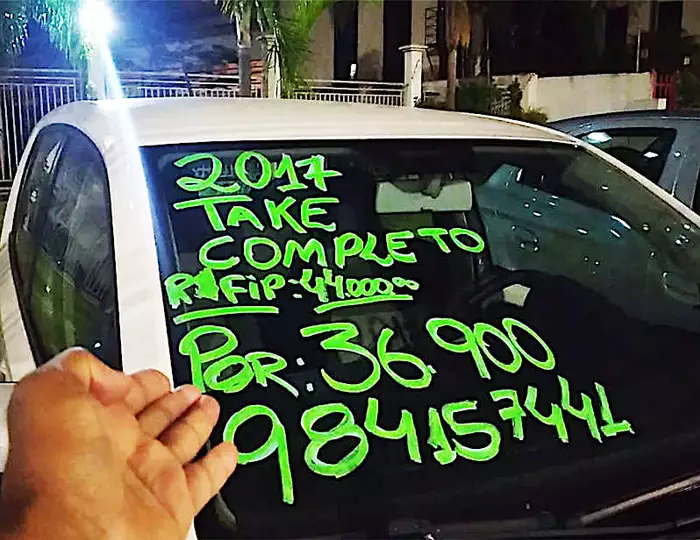 2017
TAKE
COMPLETO
FiP: 44.000,00
POR: 36.900
984157441